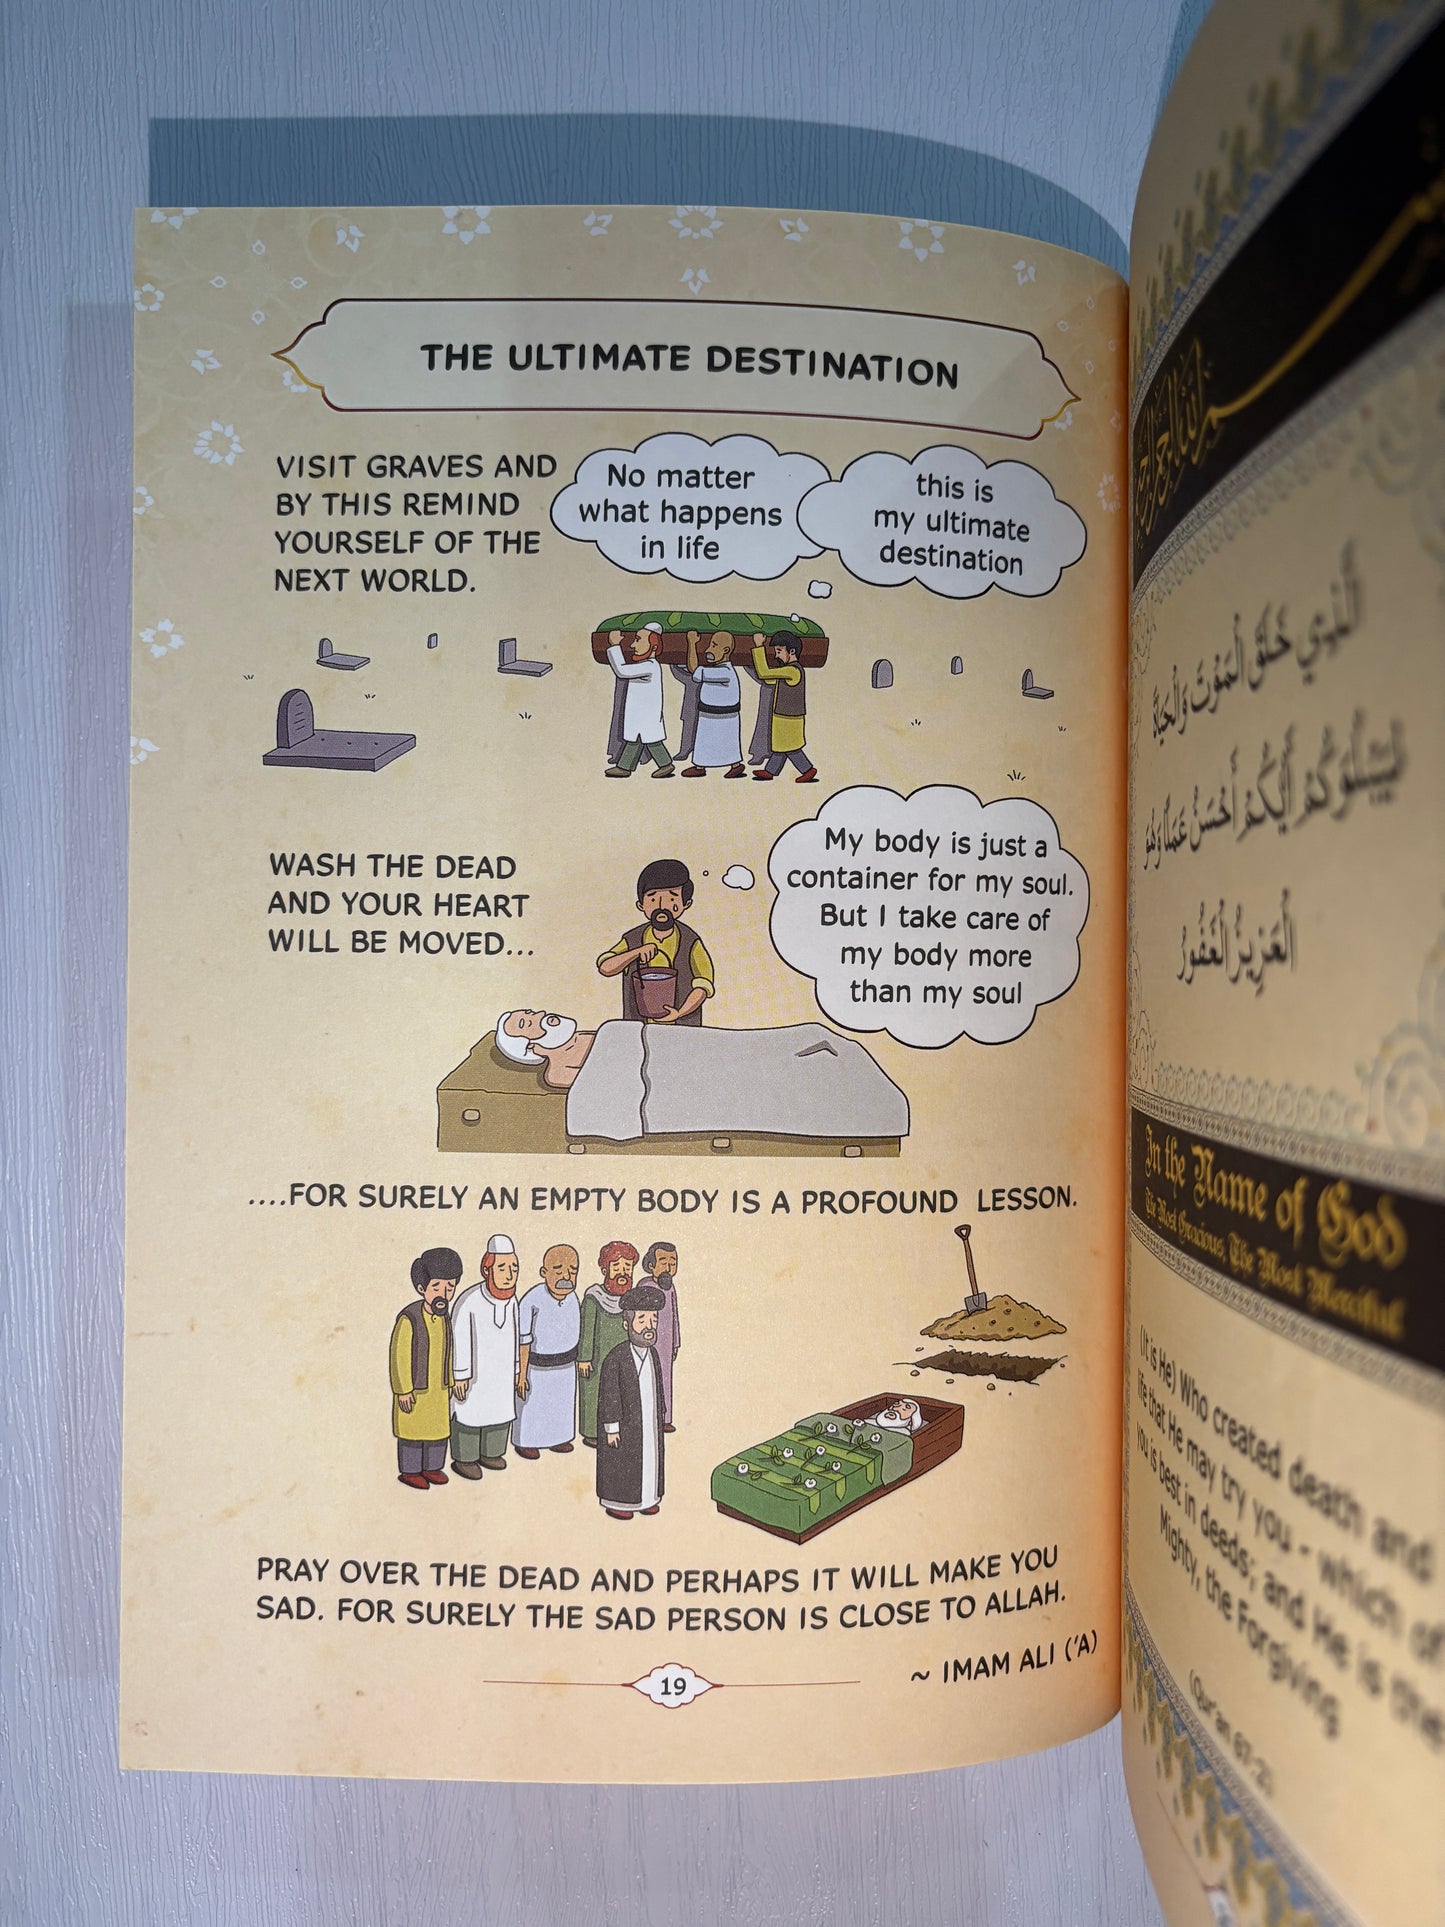 THE ULTIMATE DESTINATION
VISIT GRAVES AND
BY THIS REMIND
YOURSELF OF THE
NEXT WORLD.
No matter
what happens
in life
this is
my ultimate
destination
WASH THE DEAD
AND YOUR HEART
WILL BE MOVED...
My body is just a
container for my soul.
But I take care of
my body more
than my soul
....FOR SURELY AN EMPTY BODY IS A PROFOUND LESSON.
PRAY OVER THE DEAD AND PERHAPS IT WILL MAKE YOU
SAD. FOR SURELY THE SAD PERSON IS CLOSE TO ALLAH.
~ IMAM ALI ('A)
19
الَّذِي خَلَقَ الْمَوْتَ وَالْحَيَاةَ
لِيَبْلُوَكُمْ أَيُّكُمْ أَحْسَنُ عَمَلًا وَهُوَ
الْعَزِيزُ الْغَفُورُ
In the Name of God
The Most Gracious, The Most Merciful
(It is He) Who created death and
life that He may try you - which of
you is best in deeds; and He is the
Mighty, the Forgiving
(Qur'an 67:2)